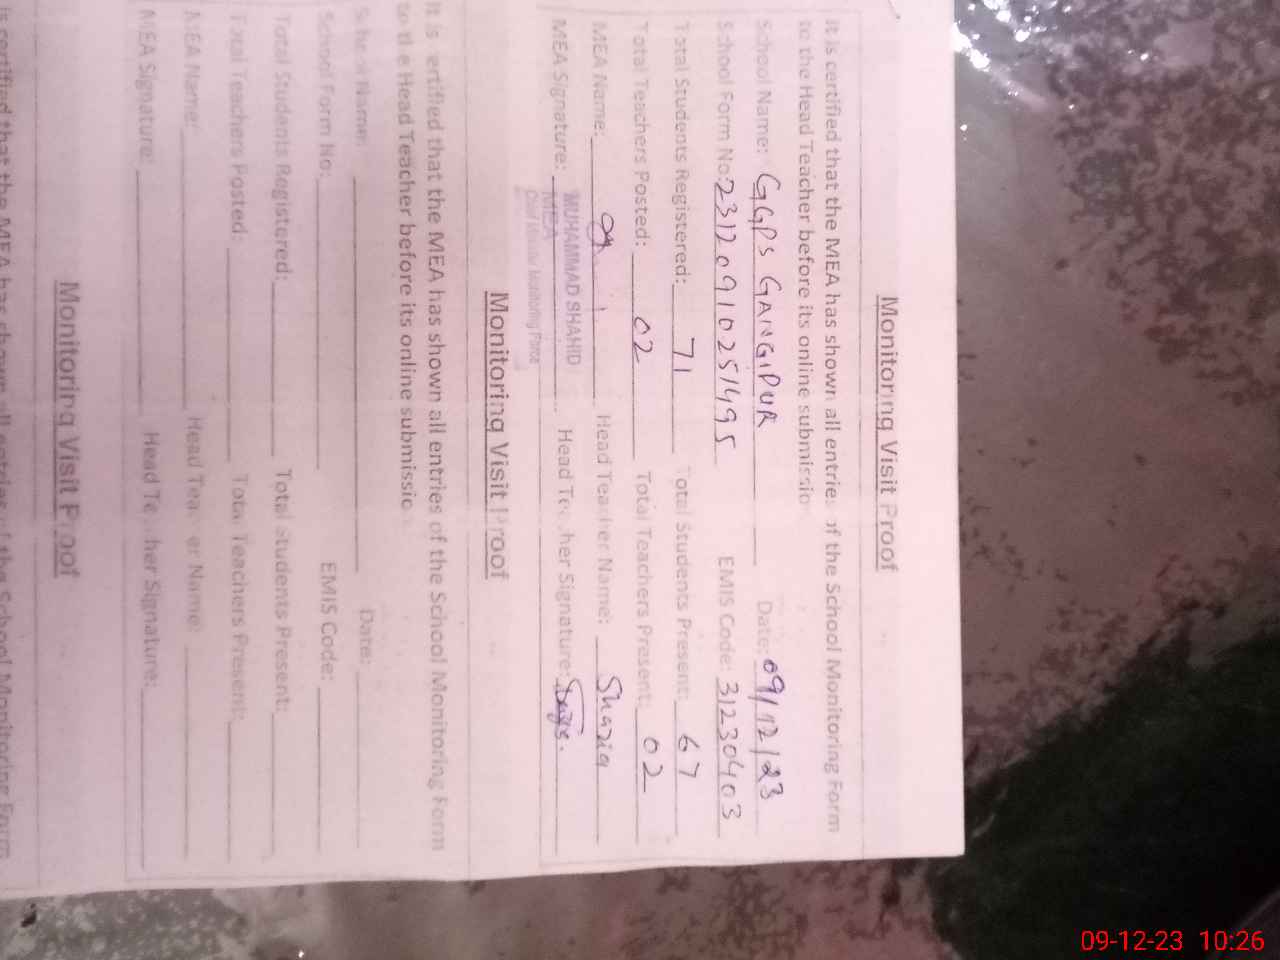 Monitoring Visit Proof
It is certified that the MEA has shown all entries of the School Monitoring Form
to the Head Teacher before its online submissio
School Name: GGPS GANGIPUR Date: 09/12/23
School Form No: 23120910251495 EMIS Code: 31230403
Total Students Registered: 71 Total Students Present: 67
Total Teachers Posted: 02 Total Teachers Present: 02
MEA Name: Head Teacher Name: Shazia
MUHAMMAD SHAHID
MEA Signature: Head Teacher Signature:
MEA
Chief Minister Monitoring Force
Monitoring Visit Proof
It is certified that the MEA has shown all entries of the School Monitoring Form
to the Head Teacher before its online submissio
School Name: Date:
School Form No: EMIS Code:
Total Students Registered: Total Students Present:
Total Teachers Posted: Total Teachers Present:
MEA Name: Head Teacher Name:
MEA Signature: Head Teacher Signature:
Monitoring Visit Proof
is certified that the MEA has shown all entries of the School Monitoring Form
09-12-23 10:26